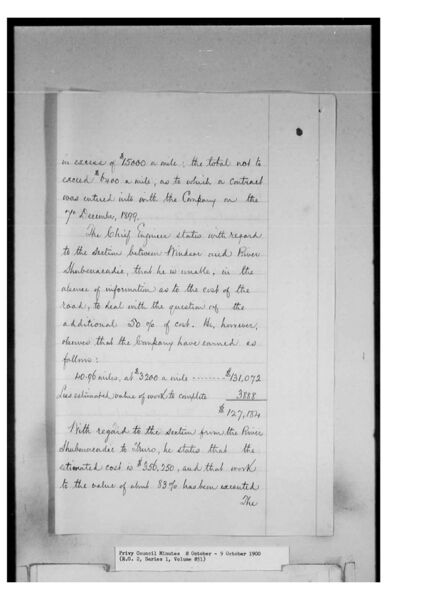 in excess of $15000 a mile; the total not to
exceed $6400 a mile, as to which a contract
was entered into with the Company on the
7th December, 1899.
The Chief Engineer states with regard
to the section between Windsor and River
Shubenacadie, that he is unable, in the
absence of information as to the cost of the
road, to deal with the question of the
additional 50% of cost. He, however,
observes that the Company have earned as
follows:
40.96 miles, at $3200 a mile ------- $131,072
Less estimated value of work to complete 3888
$127,184
With regard to the section from the River
Shubenacadie to Truro, he states that the
estimated cost is $356,250, and that work
to the value of about 83% has been executed
The
Privy Council Minutes 8 October - 9 October 1900
(R.G. 2, Series 1, Volume 851)